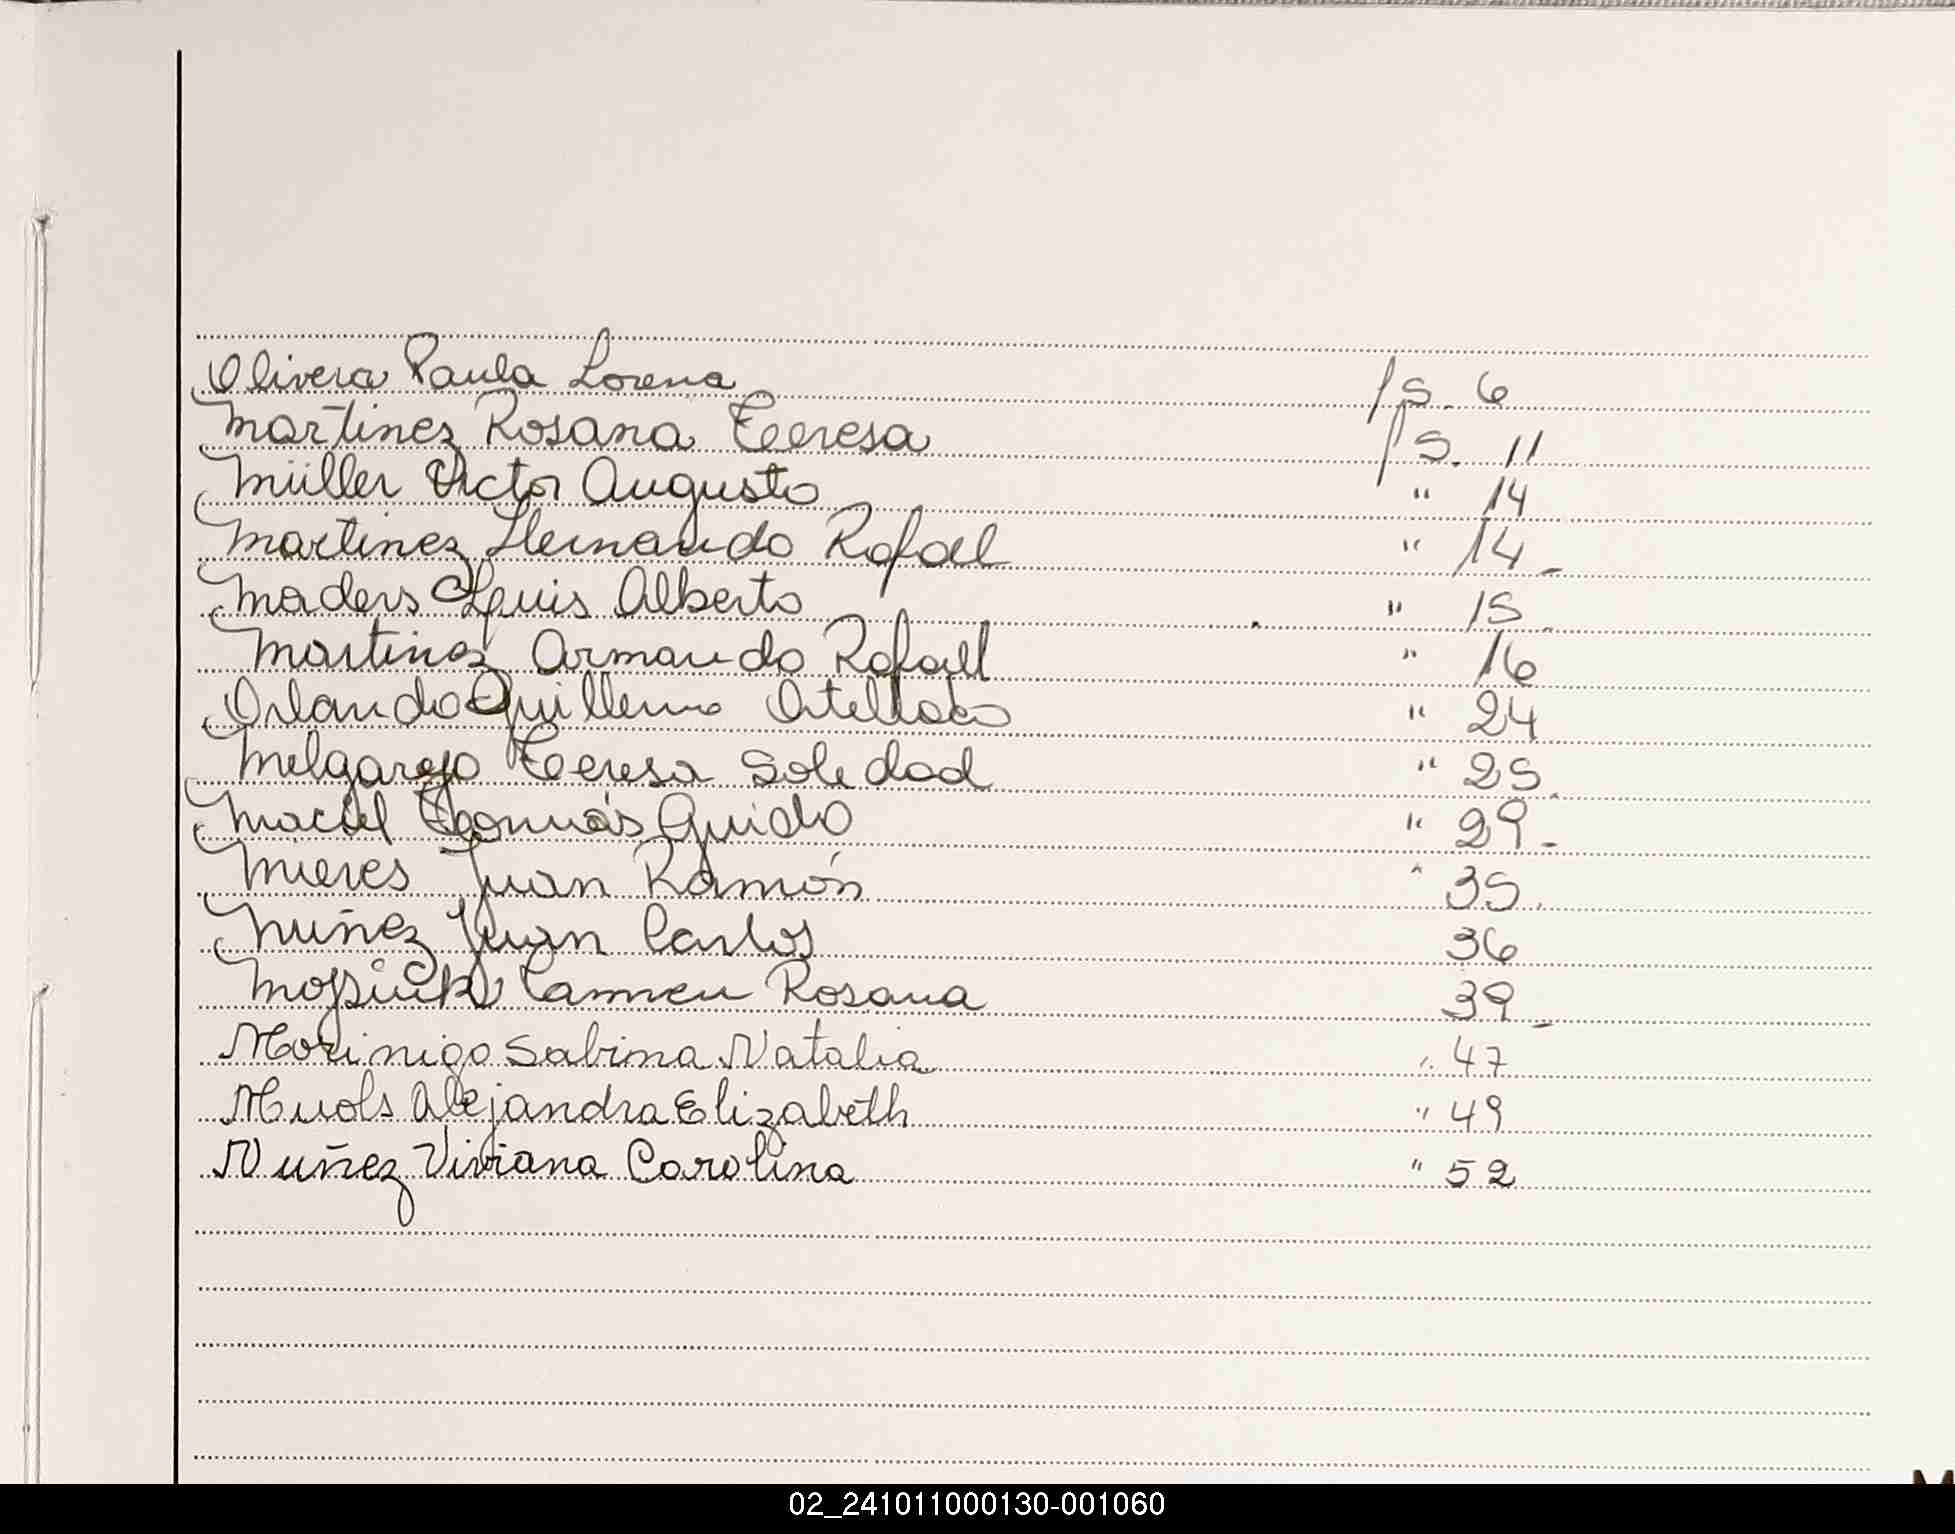 Olivera Paula Lorena fs. 6
Martinez Rosana Teresa fs. 11
Müller Victor Augusto " 14
Martinez Hernando Rafael " 14 -
Maders Luis Alberto " 15 -
Martinez Armando Rafael " 16
Orlando Guillermo " 24
Melgarejo Teresa Soledad " 25.
Maciel Tomás Guido " 29 -
Mieres Juan Ramón " 35.
Nuñez Juan Carlos 36
Carmen Rosana 39 -
Morinigo Sabrina Natalia " 47
Muols Alejandra Elizabeth " 49
Nuñez Viviana Carolina " 52
02_241011000130-001060